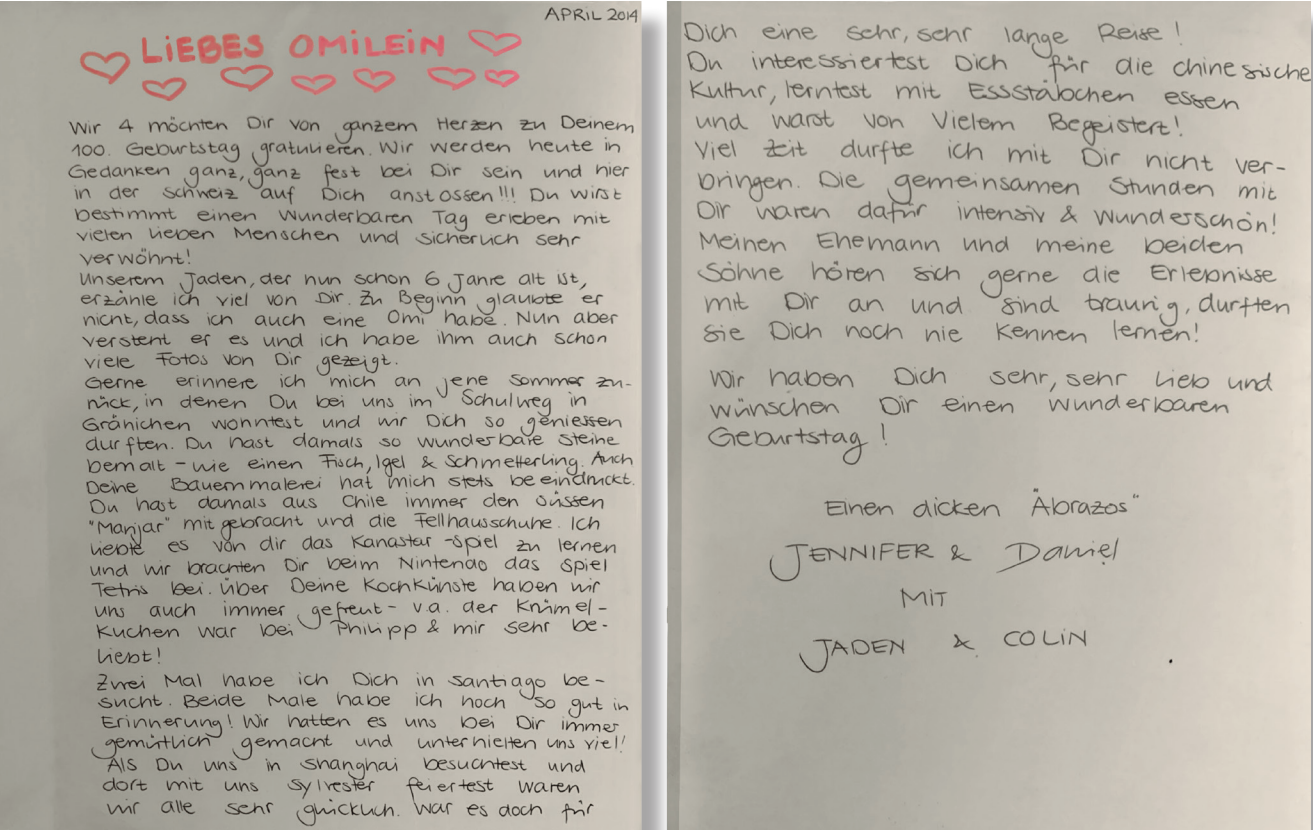 APRIL 2014
LIEBES OMILEIN
Wir 4 möchten Dir von ganzem Herzen zu Deinem
100. Geburtstag gratulieren. Wir werden heute in
Gedanken ganz, ganz fest bei Dir sein und hier
in der Schweiz auf Dich anstossen!!! Du wirst
bestimmt einen wunderbaren Tag erleben mit
vielen lieben Menschen und sicherlich sehr
verwöhnt!
Unserem Jaden, der nun schon 6 Jahre alt ist,
erzähle ich viel von Dir. Zu Beginn glaubte er
nicht, dass ich auch eine Omi habe. Nun aber
versteht er es und ich habe ihm auch schon
viele Fotos von Dir gezeigt.
Gerne erinnere ich mich an jene Sommer zu-
rück, in denen Du bei uns im Schulweg in
Gränichen wohntest und wir Dich so geniessen
durften. Du hast damals so wunderbare Steine
bemalt - wie einen Fisch, Igel & Schmetterling. Auch
Deine Bauernmalerei hat mich stets beeindruckt.
Du hast damals aus Chile immer den süssen
"Manjar" mitgebracht und die Fellhausschuhe. Ich
liebte es von dir das Kanastar-Spiel zu lernen
und wir brachten Dir beim Nintendo das Spiel
Tetris bei. Über Deine Kochkünste haben wir
uns auch immer gefreut - v.a. der Krümel-
kuchen war bei Philipp & mir sehr be-
liebt!
Zwei Mal habe ich Dich in Santiago be-
sucht. Beide Male habe ich noch so gut in
Erinnerung! Wir hatten es uns bei Dir immer
gemütlich gemacht und unterhielten uns viel!
Als Du uns in Shanghai besuchtest und
dort mit uns Sylvester feiertest waren
wir alle sehr glücklich. War es doch für
Dich eine sehr, sehr lange Reise!
Du interessiertest Dich für die chinesische
Kultur, lerntest mit Essstäbchen essen
und warst von Vielem Begeistert!
Viel Zeit durfte ich mit Dir nicht ver-
bringen. Die gemeinsamen Stunden mit
Dir waren dafür intensiv & wunderschön!
Meinen Ehemann und meine beiden
Söhne hören sich gerne die Erlebnisse
mit Dir an und sind traurig, durften
sie Dich noch nie Kennen lernen!
Wir haben Dich sehr, sehr lieb und
wünschen Dir einen wunderbaren
Geburtstag!
Einen dicken "Abrazos"
JENNIFER & Daniel
MIT
JADEN & COLIN